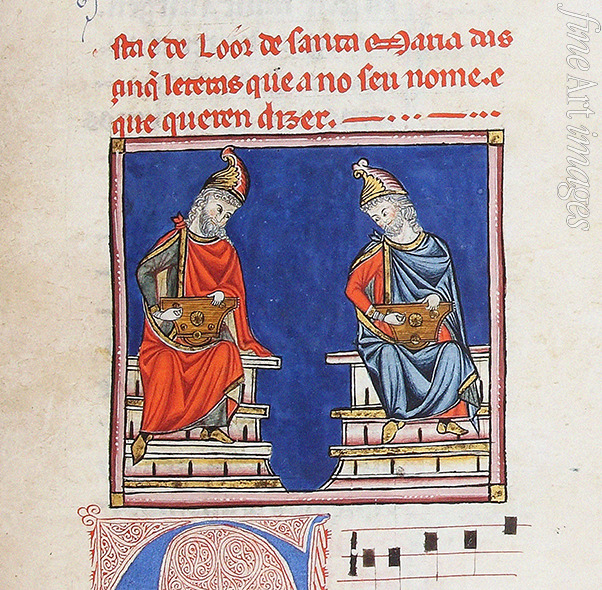 sta e de Loor de santa Maria das
çinq̃ leteras que a no seu nome. e
que queren dizer.
fineArtimages